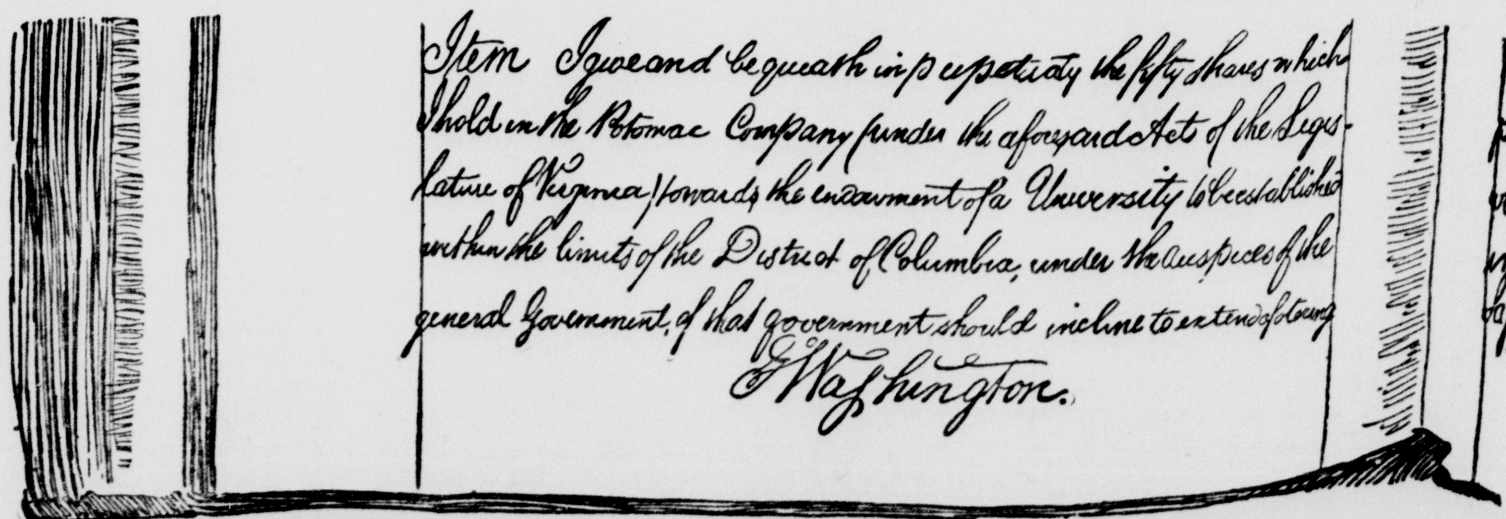 Item I give and bequeath in perpetuity the fifty shares which
I hold in the Potomac Company (under the aforesaid Acts of the Legis-
lature of Virginia) towards the endowment of a University to be established
within the limits of the District of Columbia, under the auspices of the
general Government, if that government should incline to extend a fostering
GWashington.